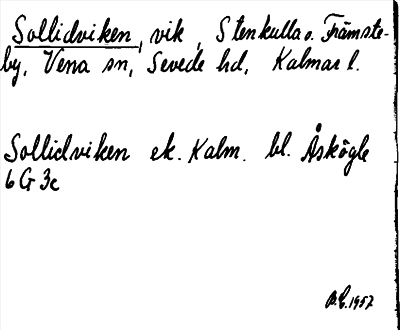 Sollidviken, vik, Stenkulla o. Främste-
by, Vena sn, Sevede hd, Kalmar l.
Sollidviken ek. Kalm. bl. Åskögle
6 G 3c
1957